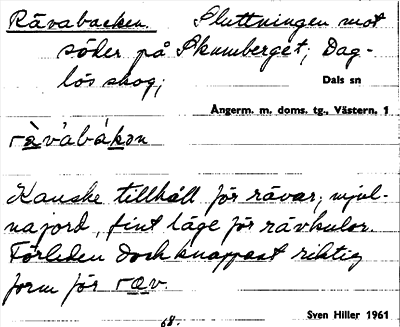 Rävabacken. Sluttningen mot
söder på Skumberget; Dag-
lös skog;
Dals sn
Ångerm. m. doms. tg., Västern. 1
rà̱v'abákən
Kanske tillhåll för rävar, mjul-
najord, fint läge för rävkulor.
Förleden dock knappast riktig
form för ræv.
68. Sven Hiller 1961